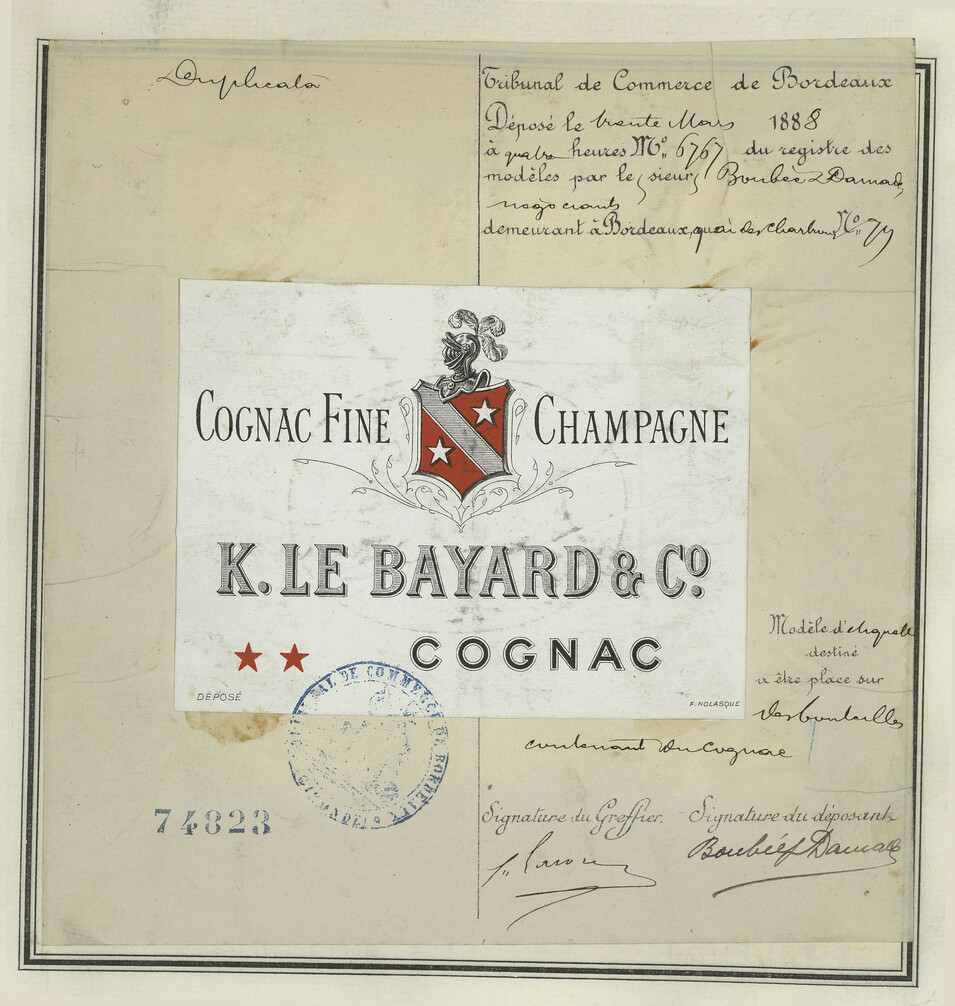 Duplicata
Tribunal de Commerce de Bordeaux
Déposé le trente Mars 1888
à quatre heures Nº 6767 du registre des
modèles par les sieurs Boubée & Damade
négociants
demeurant à Bordeaux, quai des Chartrons Nº 79
COGNAC FINE CHAMPAGNE
K. LE BAYARD & Cº.
COGNAC
DÉPOSÉ
F. NOLASQUE
Modèle d'étiquette
destiné
a être placé sur
des bouteilles
contenant du Cognac
TRIBUNAL DE COMMERCE DE BORDEAUX
74823
Signature du Greffier. Signature du déposant.
Boubée & Damade